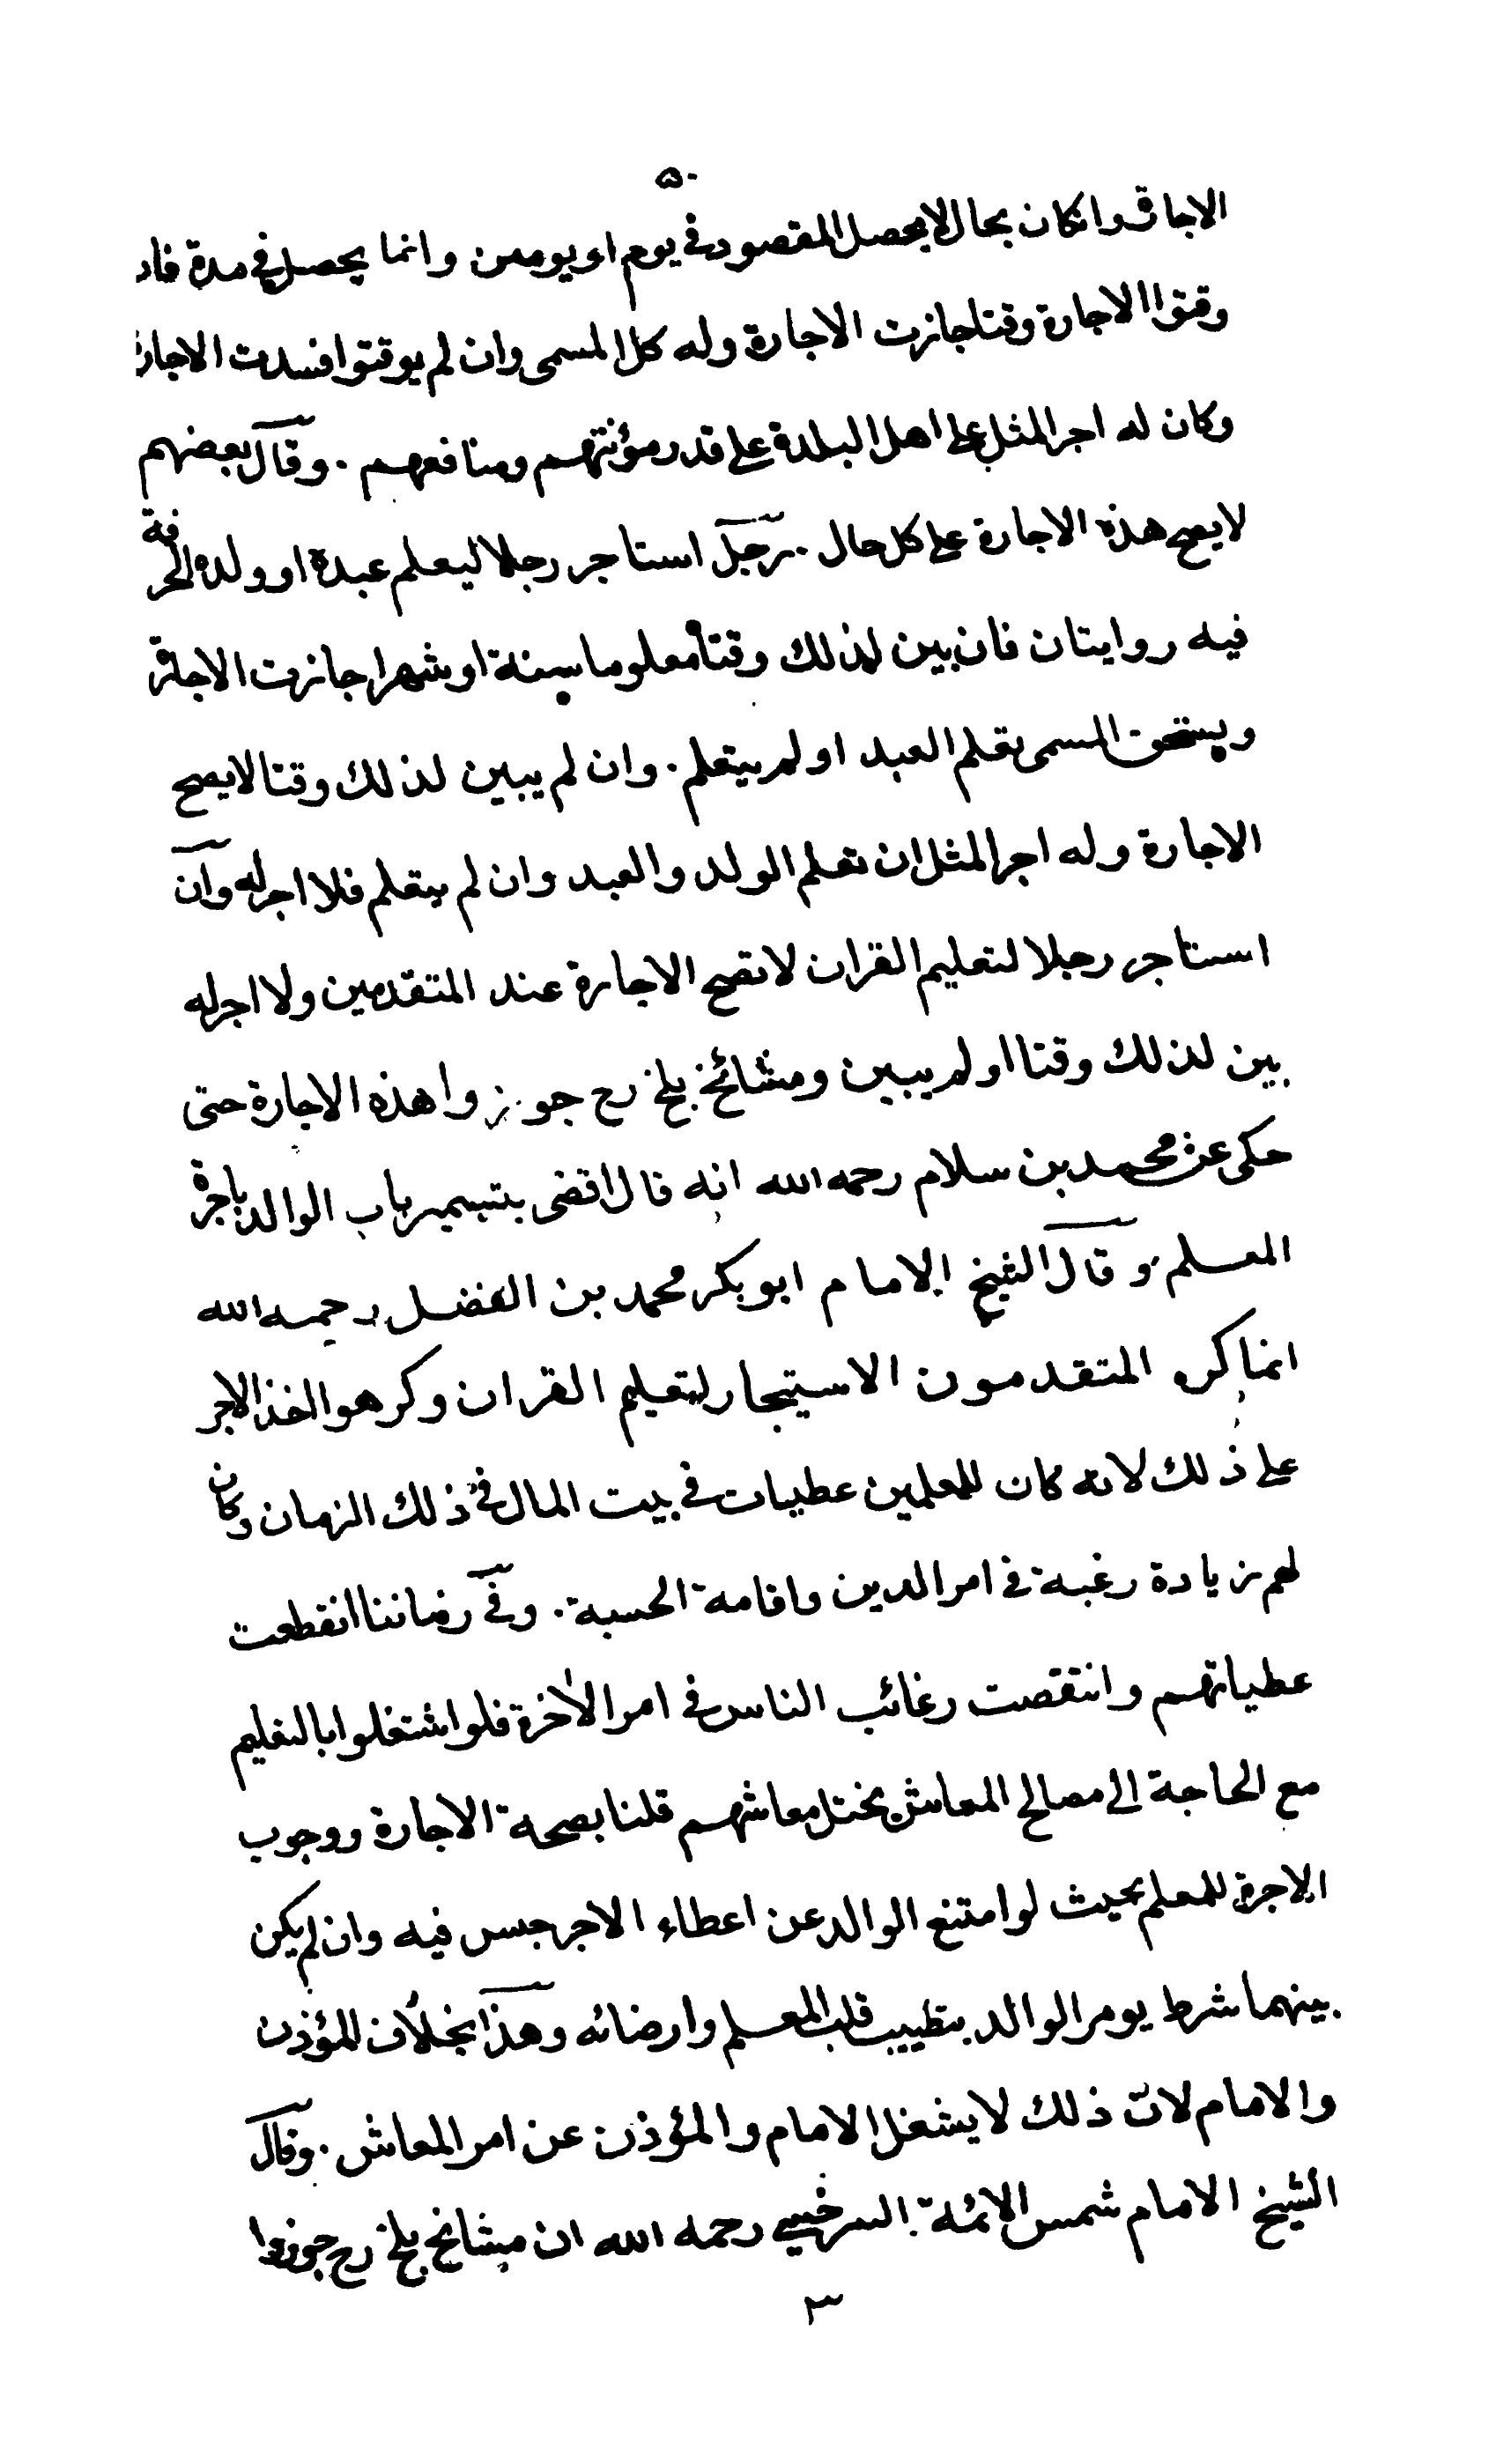 ٥٠
الاجارة وانكان بحال لايحصل المقصود في يوم او يومين وانما يحصل في مدة فان
وقتوا الاجارة وقتا جازت الاجارة وله كل المسمى وان لم يوقتوا فسدت الاجارة
وكان له اجر المثل على اهل البلدة على قدر مؤنتهم ومنافعهم . وقال بعضهم
لايصح هذه الاجارة على كل حال . رجل استاجر رجلا ليعلم عبده او ولده الحرفة
فيه روايتان فان بين لذلك وقتا معلوما سنة او شهرا جازت الاجارة
ويستحق المسمى تعلم العبد او لم يتعلم . وان لم يبين لذلك وقتا لايصح
الاجارة وله اجر المثل ان تعلم الولد والعبد وان لم يتعلم فلا اجر له وان
استاجر رجلا لتعليم القران لاتصح الاجارة عند المتقدمين ولا اجر له
بين لذلك وقتا او لم يبين ومشائخ بلخ رح جوزوا هذه الاجارة حتى
حكى عن محمد بن سلام رحمه الله انه قال اقضى بتسمير باب الوالد باجرة
المعلم وقال الشيخ الامام ابو بكر محمد بن الفضل رحمه الله
انما كره المتقدمون الاستيجار لتعليم القران وكرهوا اخذ الاجر
على ذلك لانه كان للمعلمين عطيات في بيت المال في ذلك الزمان وكان
لهم زيادة رغبة في امر الدين واقامة الحسبة . وفي زماننا انقطعت
عطياتهم وانتقصت رغائب الناس في امر الاخرة فلو اشتغلوا بالتعليم
مع الحاجة الى مصالح المعاش يختل معاشهم قلنا بصحة الاجارة ووجوب
الاجرة للمعلم بحيث لو امتنع الوالد عن اعطاء الاجر حبس فيه وان لم يكن
بينهما شرط يومر الوالد بتطييب قلب المعلم وارضائه وهذا بخلاف المؤذن
والامام لان ذلك لايشغل الامام والمؤذن عن امر المعاش . وقال
الشيخ الامام شمس الائمة السرخسي رحمه الله ان مشائخ بلخ رح جوزوا
٣